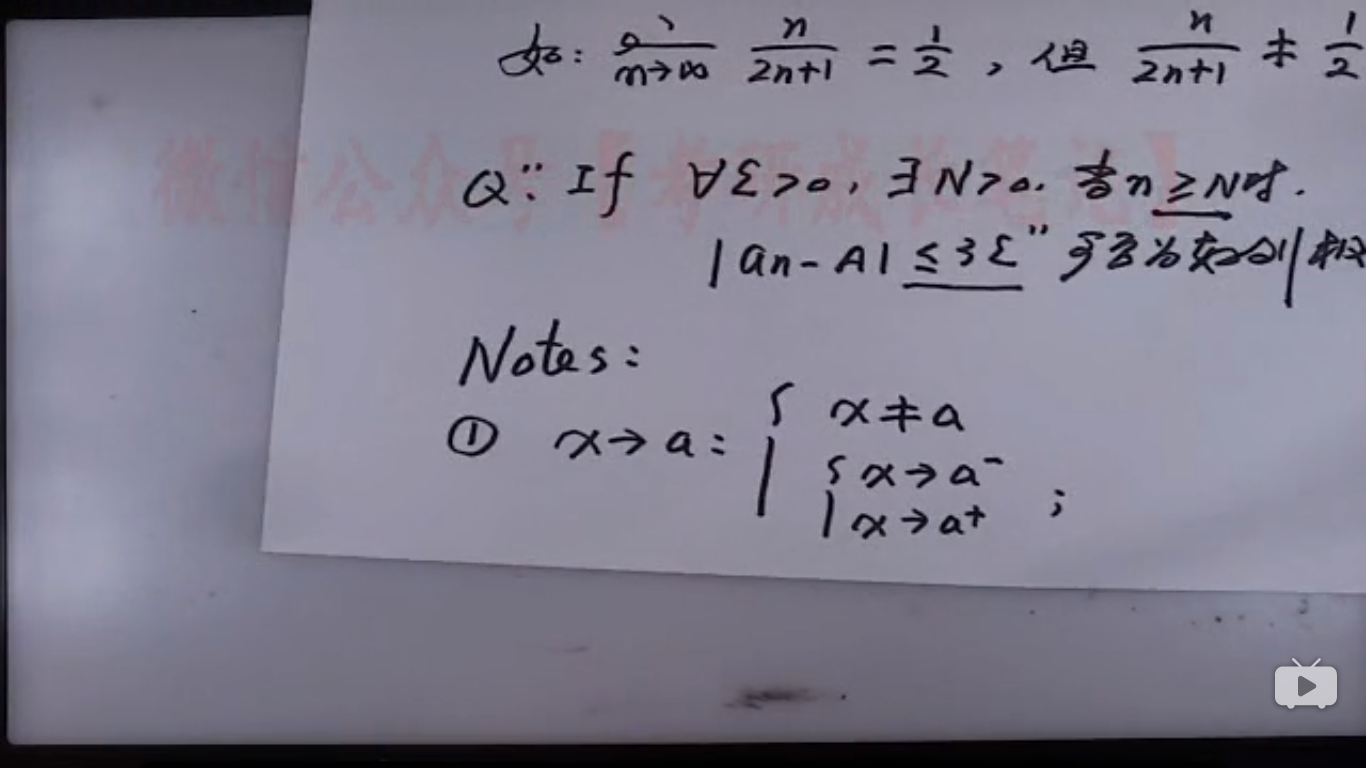 如: n→∞ n/(2n+1) = 1/2 , 但 n/(2n+1) ≠ 1/2
微信公众号【考研成长笔记】
Q: "If ∀ε>0, ∃N>0. 当n≥N时.
|an-A| ≤ 3ε" 可否为数列极
Notes:
① x→a: { x≠a
{ x→a⁻
x→a⁺ ;